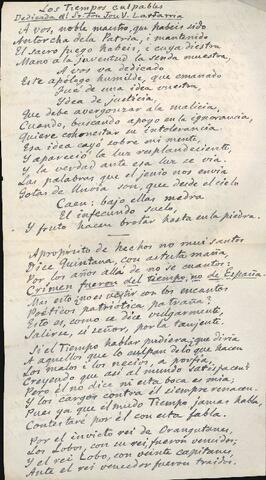 Los Tiempos culpables
Dedicada al Sr. Don José V. Lastarria
A vos, noble maestro, que habeis sido
Antorcha de la Patria, i mantenido
El sacro fuego habeis, i cuya diestra
Mano a la juventud la senda muestra,
A vos va dedicado
Este apólogo humilde, que emanado
Fué de una idea vuestra,
Idea de justicia,
Que debe avergonzar a la malicia,
Cuando, buscando apoyo en la ignorancia,
Quiere cohonestar su intolerancia.
Esa idea cayó sobre mi mente,
Y apareció la luz resplandeciente,
Y la verdad ante esa luz se via.
Las palabras que el jenio nos envia
Gotas de lluvia son, que desde el cielo
Caen: bajo ellas medra
El infecundo suelo,
Y fruto hacen brotar hasta en la piedra.
Apropósito de hechos no mui santos
Dice Quintana, con astuta maña,
Por los años allá de no se cuantos:
Crímen fueron del tiempo, no de España.
Mas esto ¿no es vestir con los encantos
Poéticos patriótica patraña?
Esto es, como se dice vulgarmente,
Salirse, sí señor, por la tanjente.
Si el Tiempo hablar pudiera ¿que diria
A aquellos que lo culpan de lo que hacen
Los malos i los necios, a porfia,
Creyendo que así al mundo satisfacen?
Pero él no dice ni esta boca es mia,
Y los cargos contra él siempre renacen.
Pues ya que el mudo Tiempo jamas habla,
Contestaré por él con esta fabla.
Por el invicto rei de Orangutanes,
Los Lobos, con su rei, fueron vencidos;
Y el rei Lobo, con veinte capitanes,
Ante el rei vencedor fueron traidos.